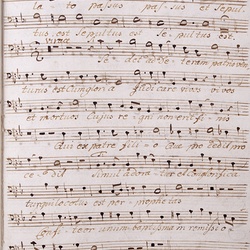 la to passus passus et sepul
tus est sepultus est sepultus est.
Sedet ad dexteram patris et i
turus est cum gloria judicare vivos vivos
et mortuos Cujus regni non erit finis
qui ex patre filioque procedit pro
cedit simul adoratur et conglorifica
tur qui locutus est per prophetas
confiteor unum baptisma in remissio